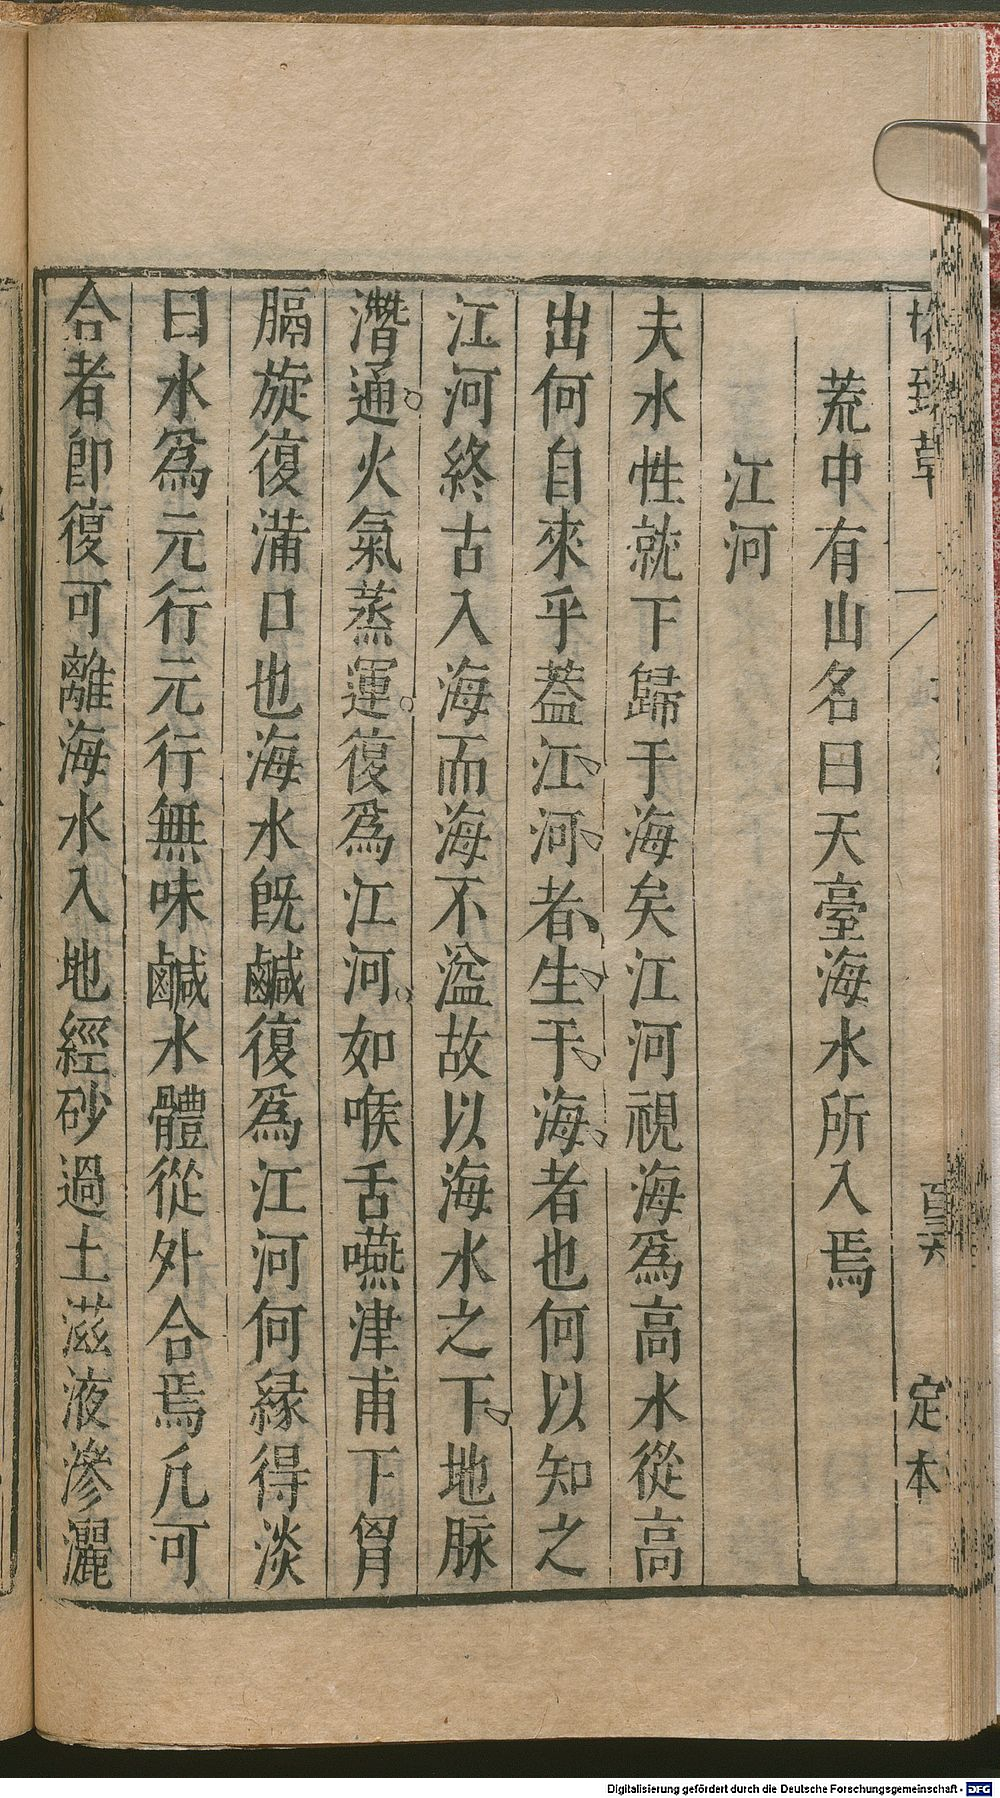 格致草
定本
荒中有山名曰天臺海水所入焉
江河
夫水性就下歸于海矣江河視海爲高水從高
出何自來乎蓋江河者生于海者也何以知之
江河終古入海而海不溢故以海水之下地脉
潛通火氣蒸運復爲江河如喉舌嚥津甫下胷
膈旋復滿口也海水旣鹹復爲江河何緣得淡
曰水爲元行元行無味鹹水體從外合焉凡可
合者卽復可離海水入地經砂過土滋液滲灑
Digitalisierung gefördert durch die Deutsche Forschungsgemeinschaft - DFG